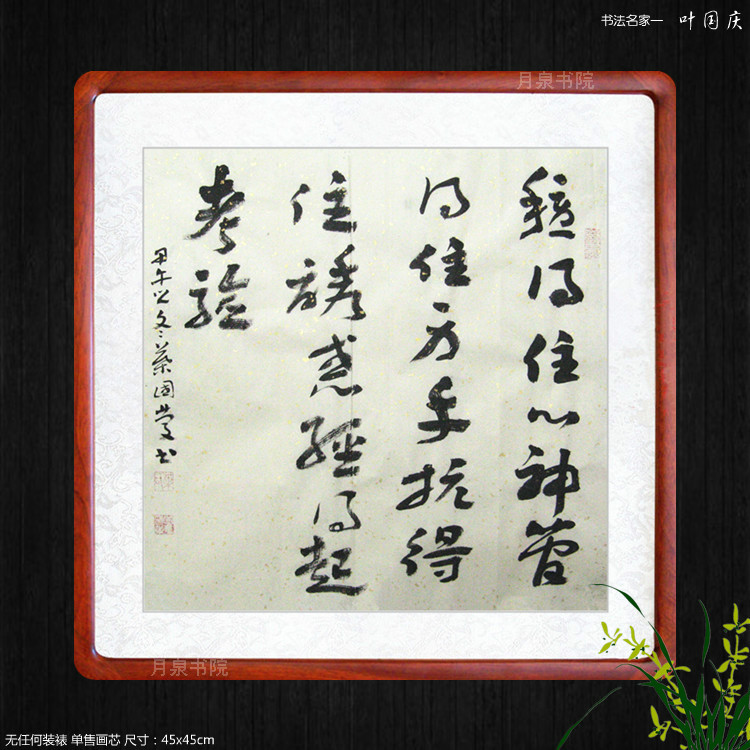 书法名家一 叶国庆
月泉书院
穩得住心神管
得住身手抗得
住誘惑經得起
考驗
甲午之冬葉國慶书
月泉书院
无任何装裱 单售画芯 尺寸：45x45cm